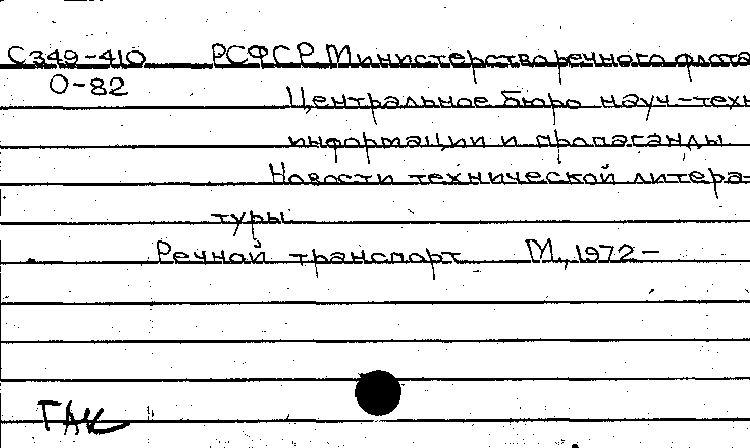 С349-410 РСФСР Министерство речного флота
О-82 Центральное бюро науч-техн
информации и пропаганды
Новости технической литера-
туры
Речной транспорт М., 1972-
ГАК